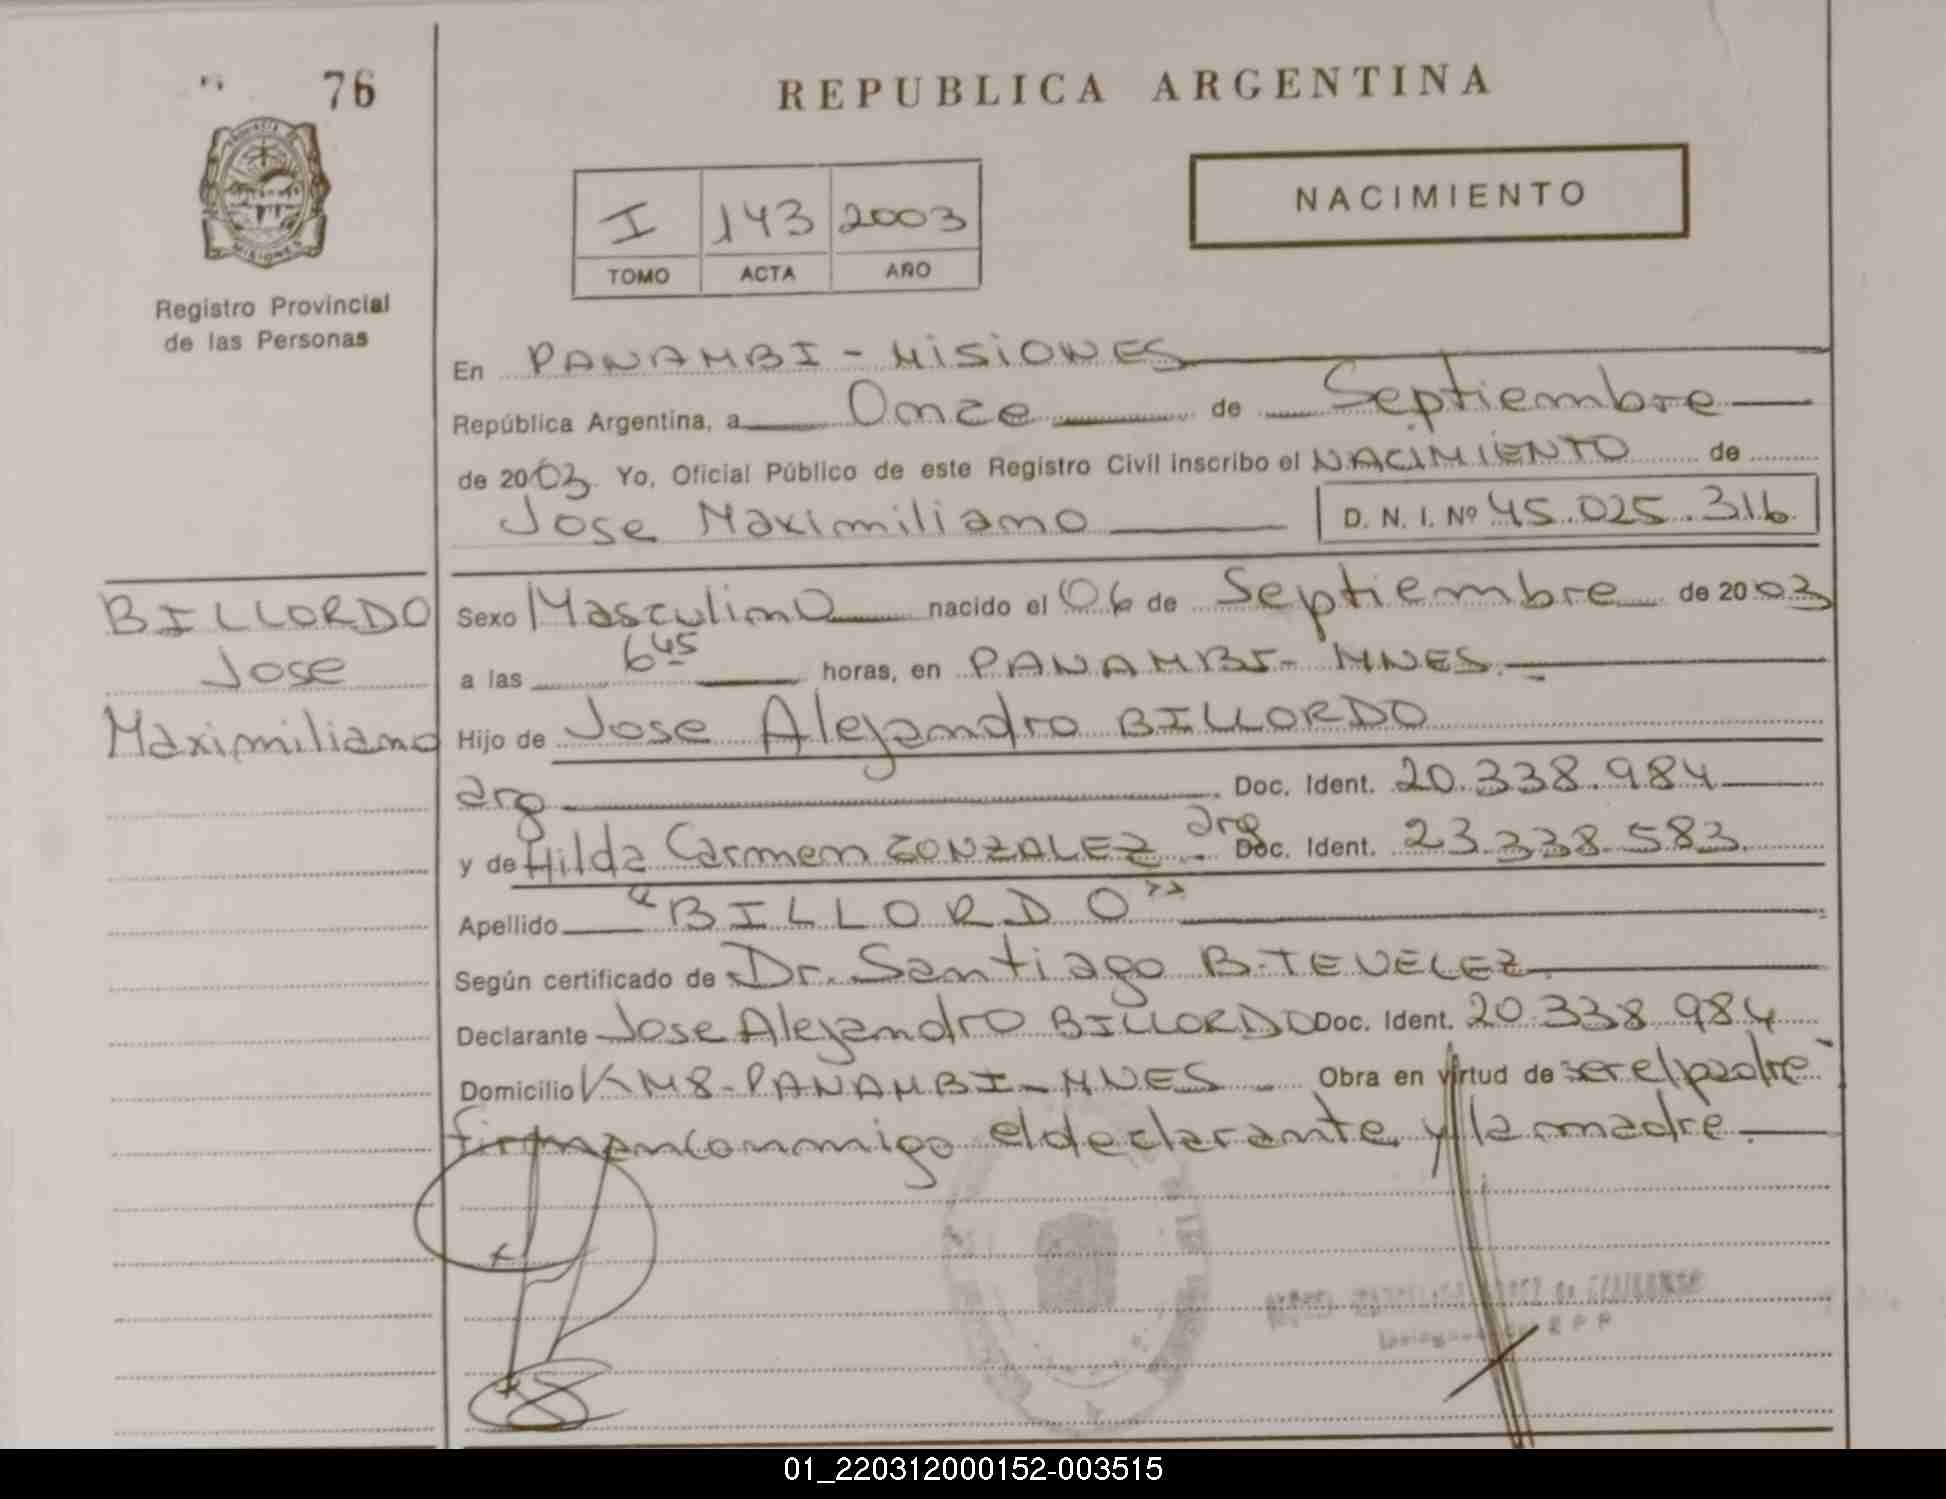 76
REPUBLICA ARGENTINA
PROVINCIA DE
MISIONES
NACIMIENTO
I 143 2003
TOMO ACTA AÑO
Registro Provincial
de las Personas
En PANAMBI - MISIONES
República Argentina, a Once de Septiembre
de 2003 Yo, Oficial Público de este Registro Civil inscribo el NACIMIENTO de
Jose Maximiliano D. N. I. Nº 45.025.316
BILLORDO
Jose
Maximiliano
Sexo Masculino nacido el 06 de Septiembre de 2003
a las 6 45 horas, en PANAMBI - MNES.
Hijo de Jose Alejandro BILLORDO
arg Doc. Ident. 20.338.984
y de Hilda Carmen GONZALEZ arg Doc. Ident. 23.338.583
Apellido "BILLORDO"
Según certificado de Dr. Santiago B. TEVELEZ.
Declarante Jose Alejandro BILLORDO Doc. Ident. 20.338.984
Domicilio KM8 - PANAMBI - MNES - Obra en virtud de ser el padre
firman conmigo el declarante y la madre.
R P P
01_220312000152-003515